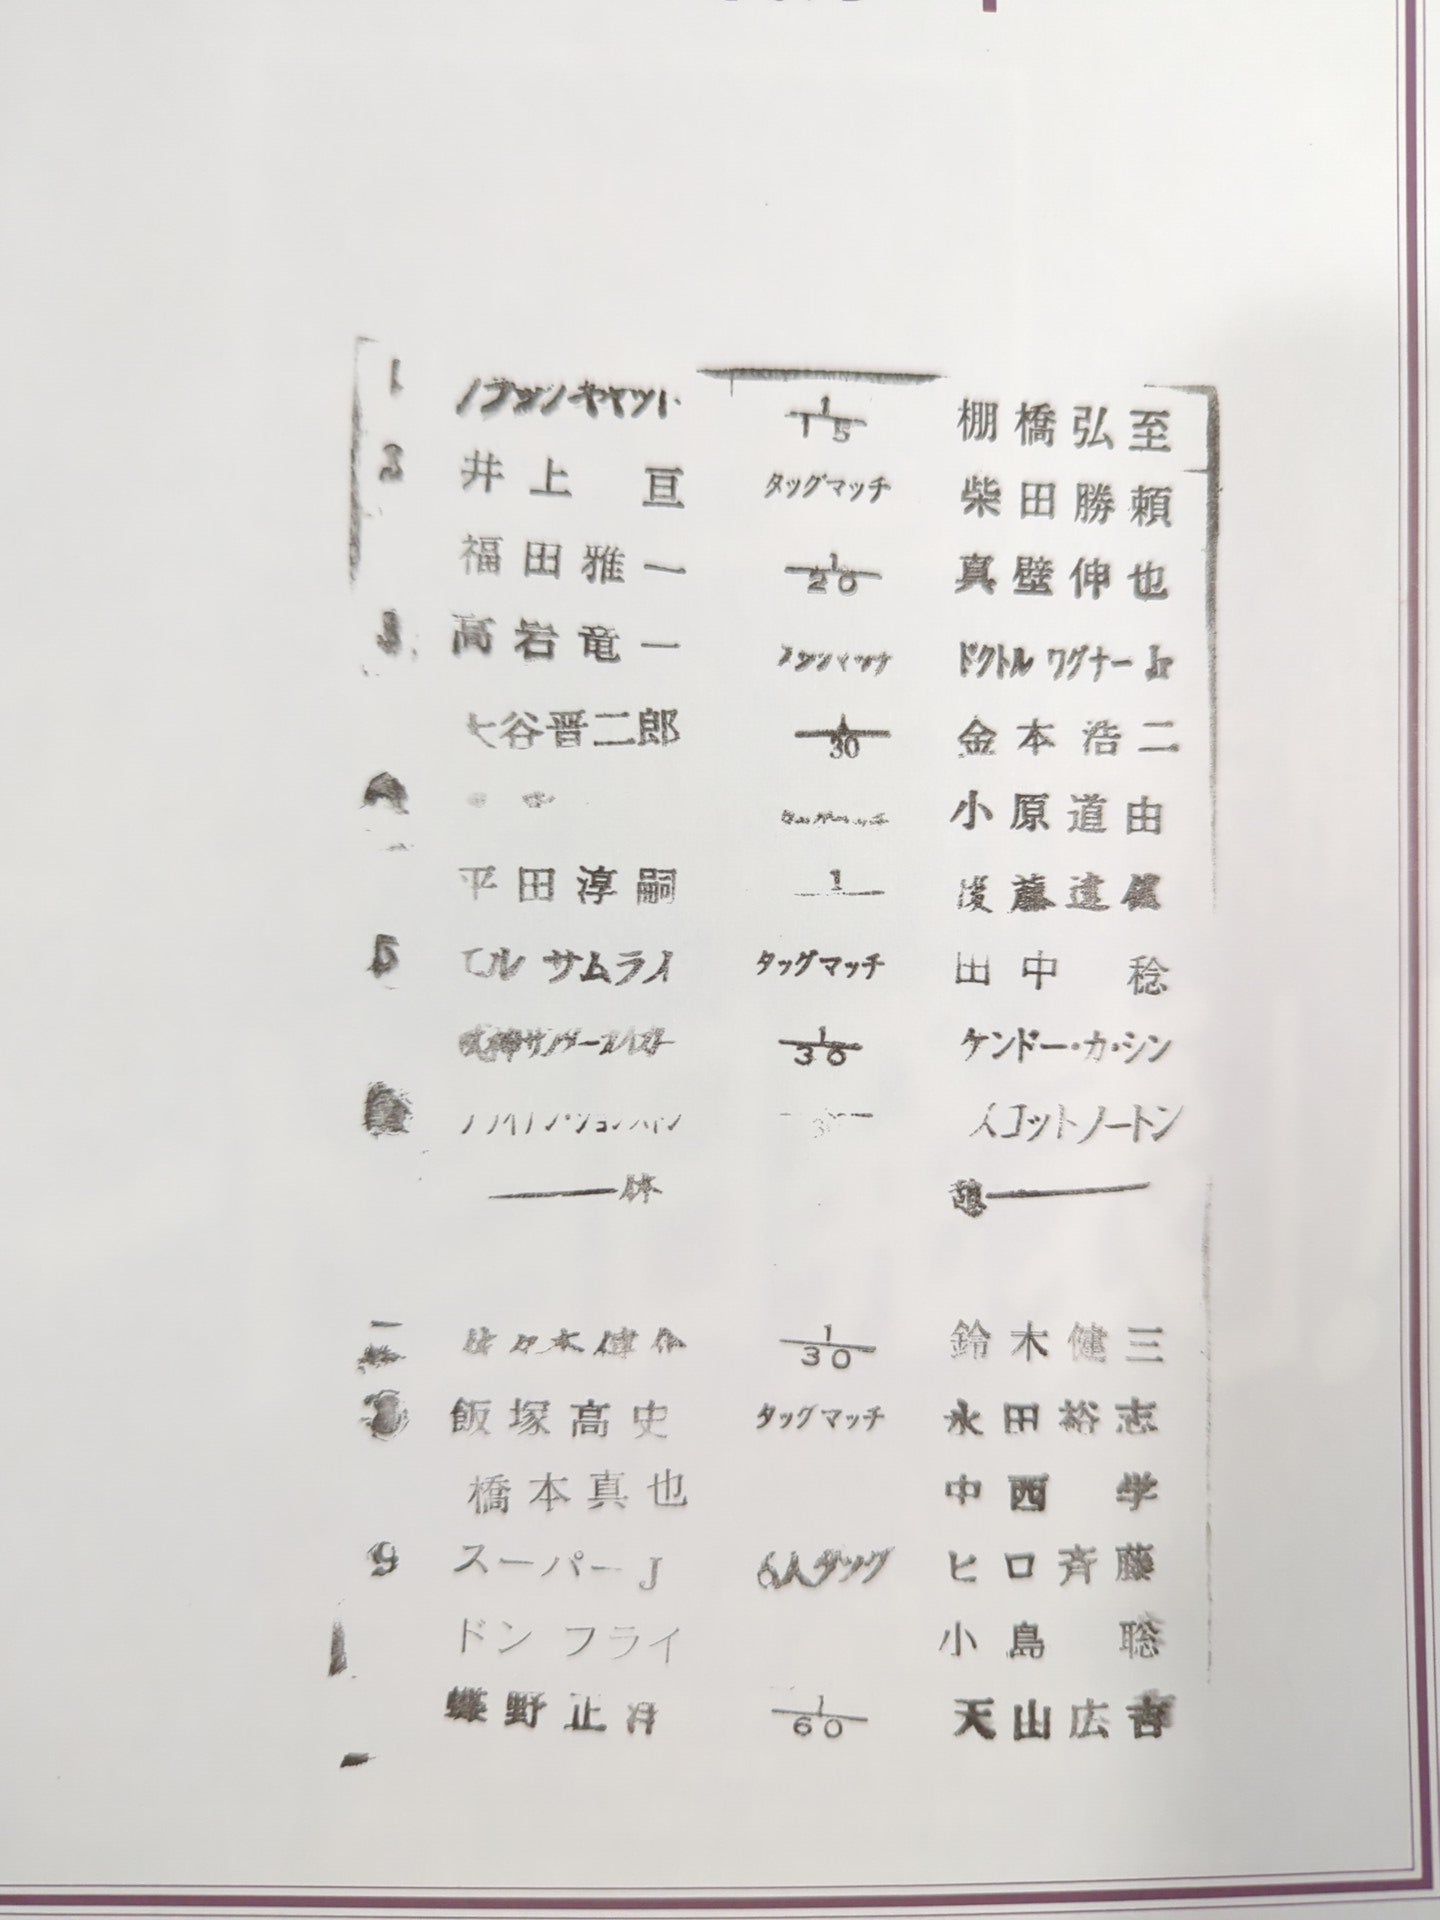 1 ブラックキャット 1/15 棚橋弘至
2 井上 亘 タッグマッチ 柴田勝頼
福田雅一 1/20 真壁伸也
3 高岩竜一 タッグマッチ ドクトル ワグナー Jr
大谷晋二郎 1/30 金本浩二
小原道由
平田淳嗣 1 後藤達俊
5 エル サムライ タッグマッチ 田中 稔
1/30 ケンドー・カ・シン
スコットノートン
休 憩
佐々木健介 1/30 鈴木健三
飯塚高史 タッグマッチ 永田裕志
橋本真也 中西 学
9 スーパーJ 6人タッグ ヒロ斉藤
ドン フライ 小島 聡
蝶野正洋 1/60 天山広吉